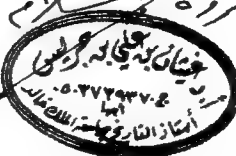 غيثان بن علي بن جريس
٠٥٠٣٧٢٩٣٧٠ ج
أبها
أستاذ التاريخ بجامعة الملك خالد